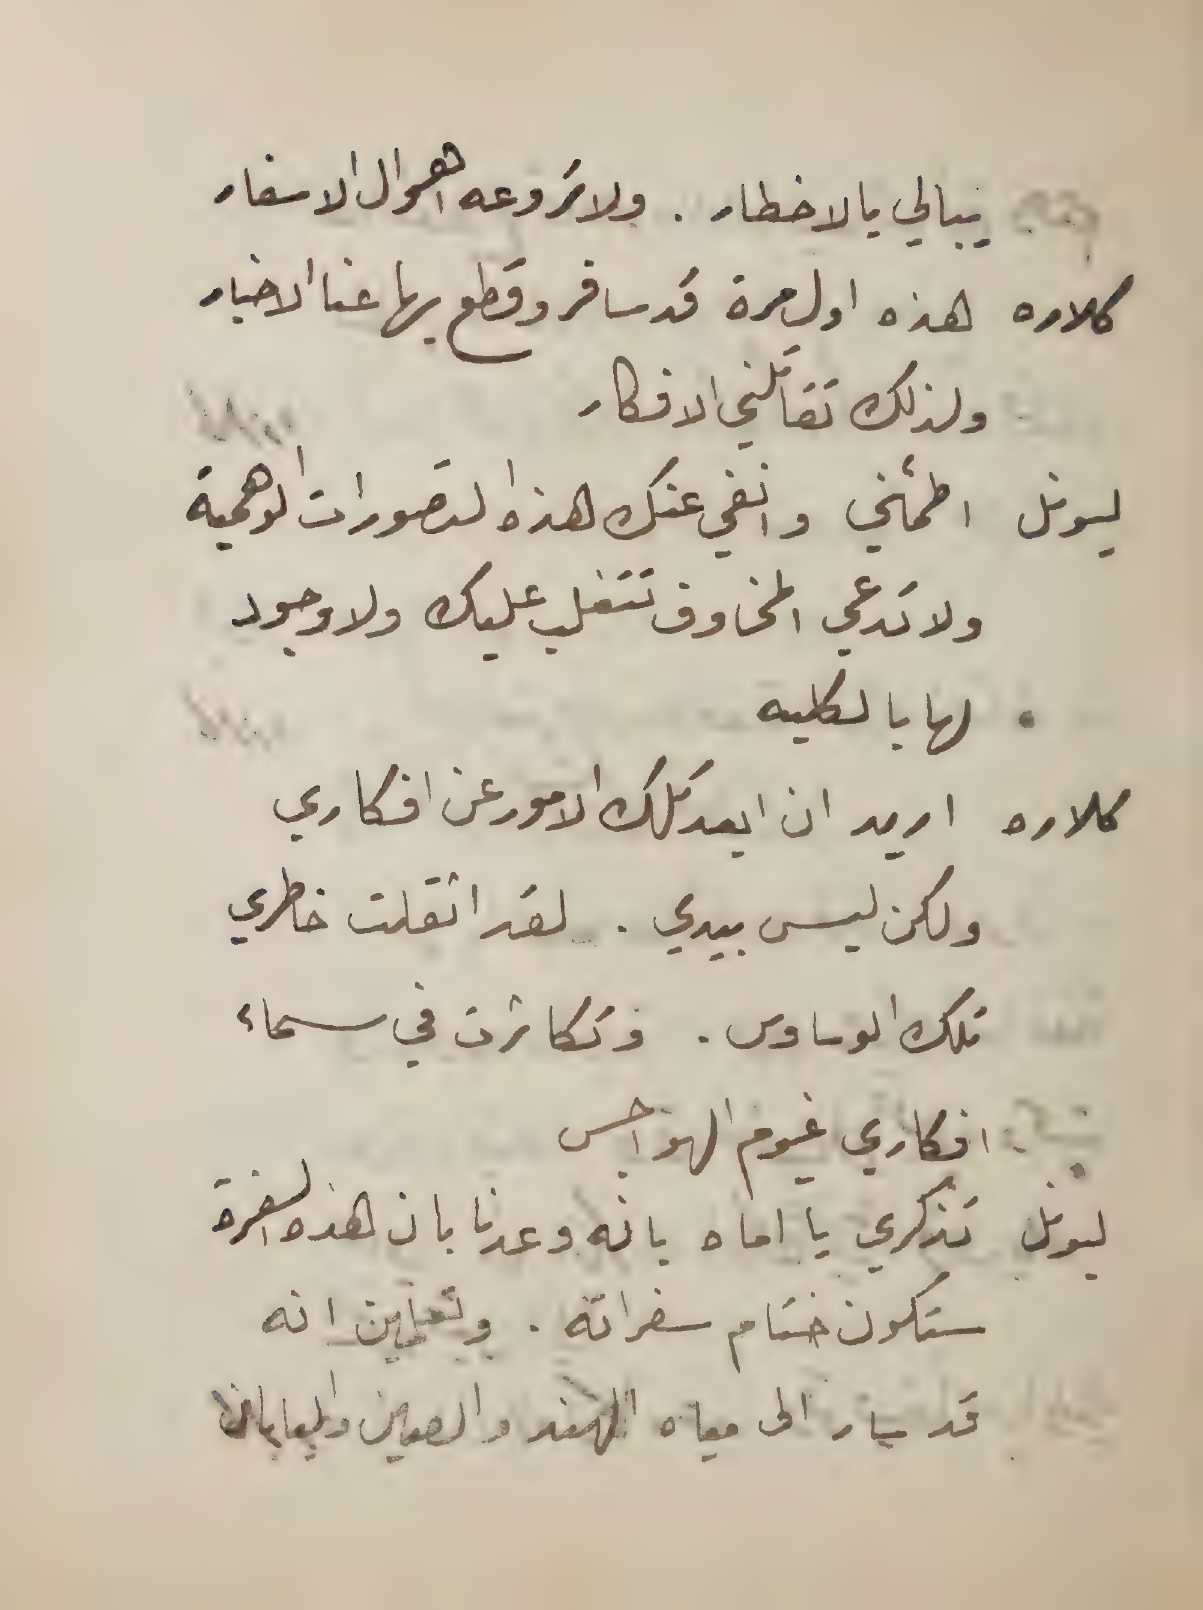 يبالي بالاخطار . ولا تروعه اهوال الاسفار
كلاره هذه اول مرة قد سافر وقطع بها عنا الاخبار
ولذلك تقاتلني الافكار
ليونل اطمئني وانفي عنك هذه التصورات الوهمية
ولا تدعي المخاوف تتغلب عليك ولا وجود
لها بالكليه
كلاره اريد ان ابعد تلك الامور عن افكاري
ولكن ليس بيدي . لقد اثقلت خاطري
تلك الوساوس . وتكاثرت في سماء
افكاري غيوم الهواجس
ليونل تذكري يا اماه بانه وعدنا بان هذه السفرة
ستكون ختام سفراته . وتعلمين انه
قد سار الى مياه الهند والصين واليابان